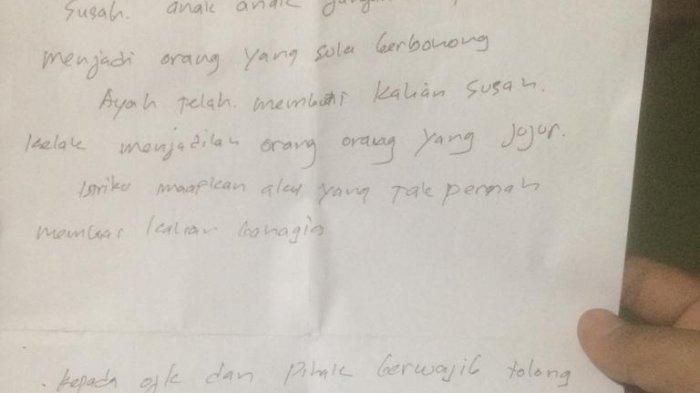 susah. anak anak jangan
menjadi orang yang suka berbohong
Ayah telah membuat kalian susah.
kelak menjadilah orang orang yang jujur.
istriku maapkan aku yang tak pernah
membuat kalian bahagia
. kepada ojk dan Pihak berwajib tolong